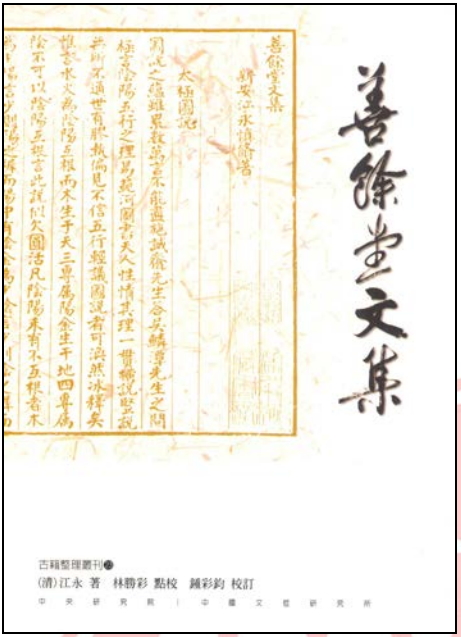 善餘堂文集
善餘堂文集
新安江永慎修著
太極圖說
圖說之蘊雖累數萬言不能盡施誠齋先生答吳鱗潭先生之問
極言陰陽五行之理為疏河圖書天人性情其理一貫橫說豎說
無所不通世有執偏見不信五行輕議圖說者可渙然冰釋矣
惟言水火為陰陽互根而木生于天三專屬陽金生于地四專屬
陰不可以陰陽互根言此說似欠圓活凡陰陽未有不互根者木
古籍整理叢刊
(清)江永 著 林勝彩 點校 鍾彩鈞 校訂
中央研究院｜中國文哲研究所